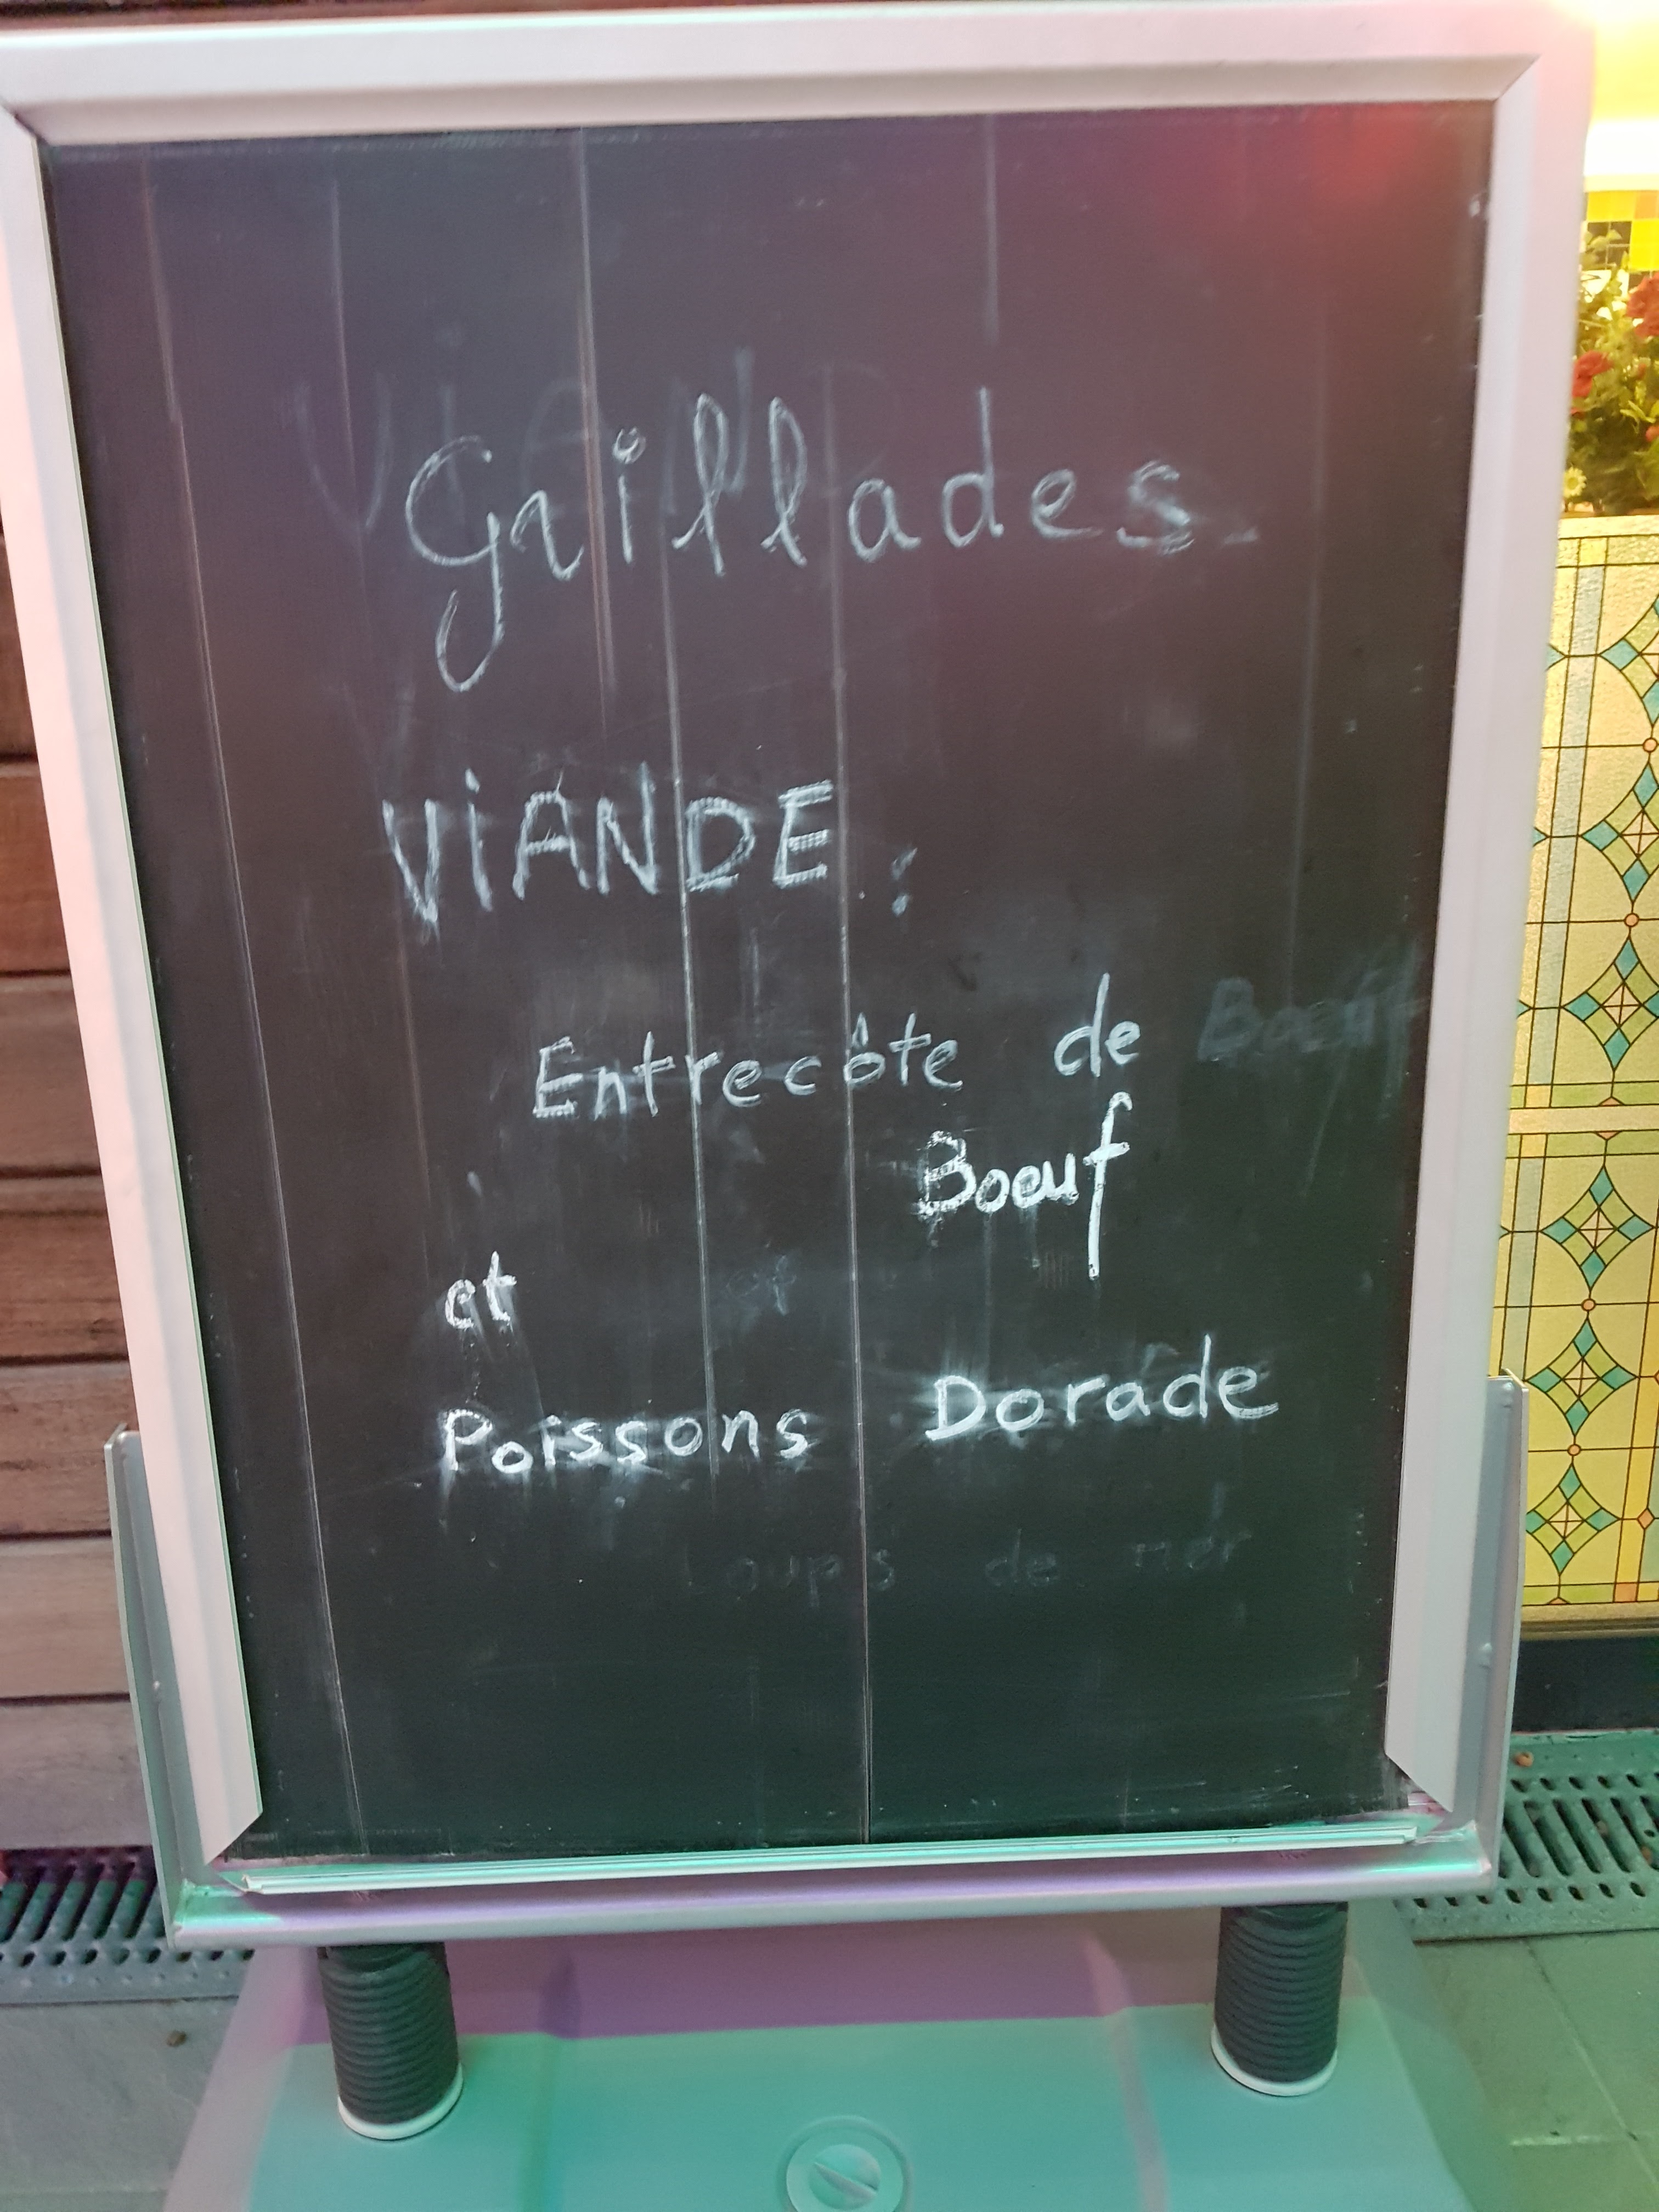 Grillades
VIANDE :
Entrecôte de Boeuf
Boeuf
et
Poissons Dorade
Loups de mer